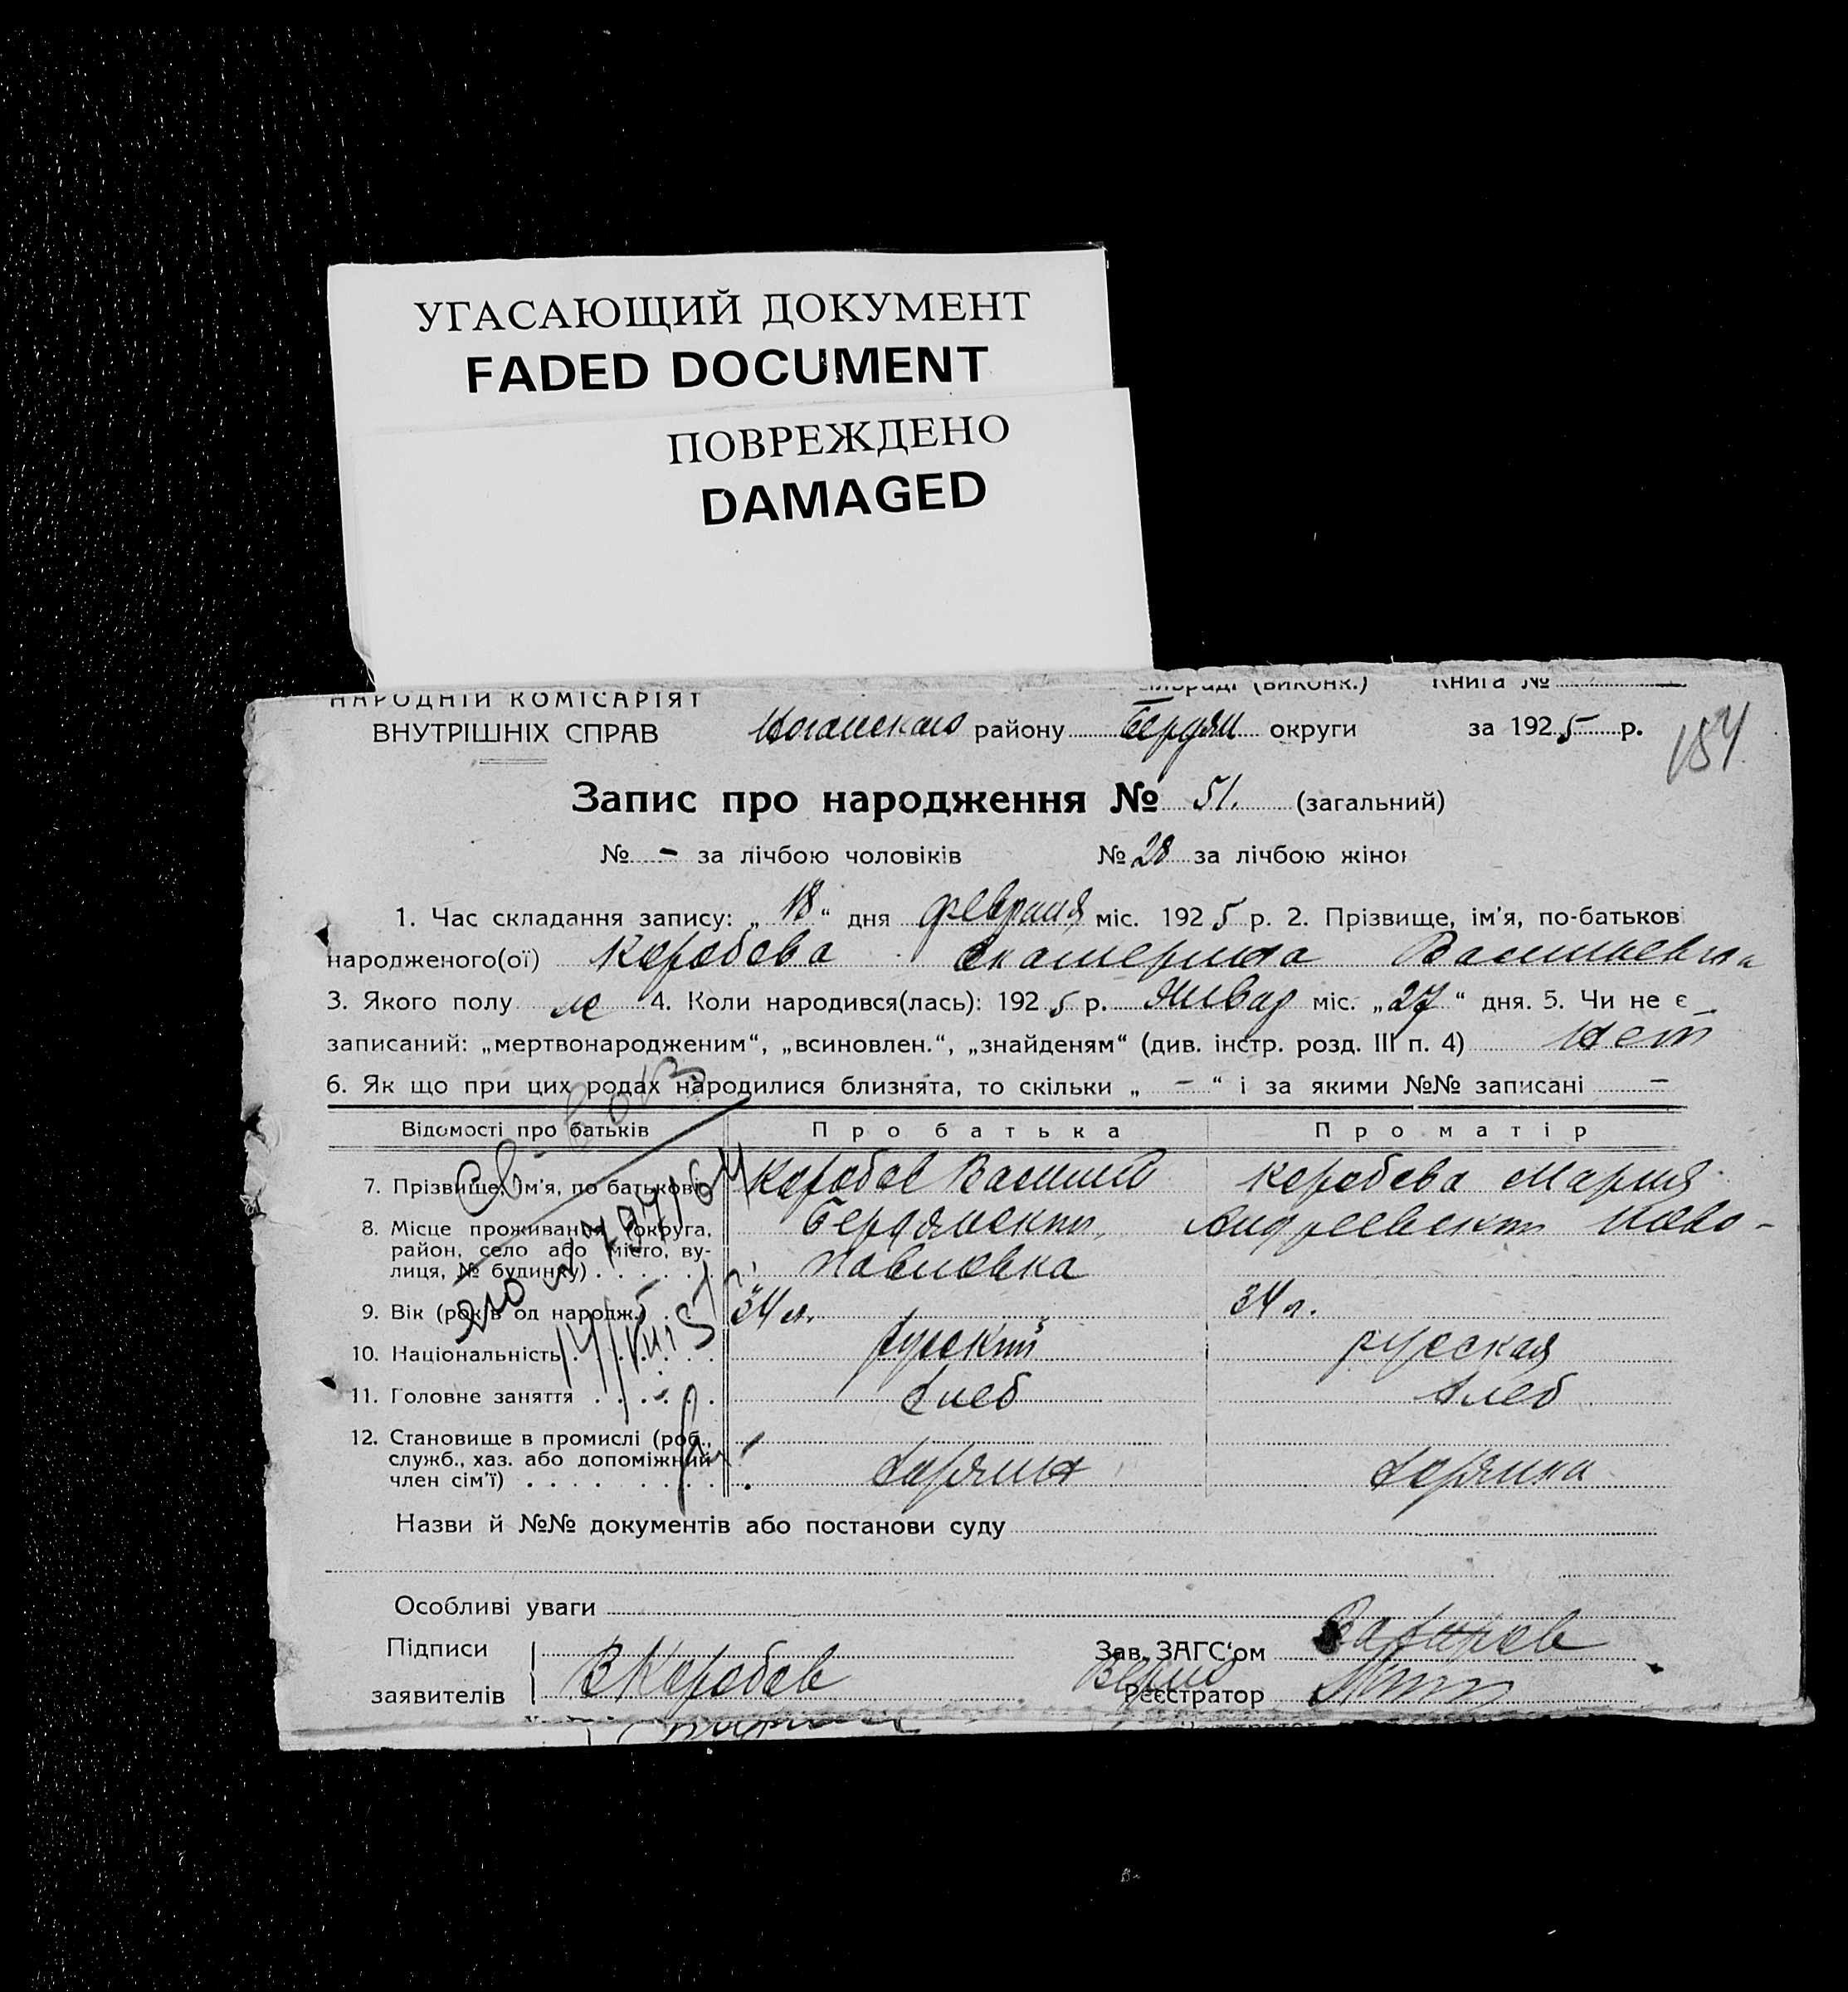 УГАСАЮЩИЙ ДОКУМЕНТ
FADED DOCUMENT
ПОВРЕЖДЕНО
DAMAGED
НАРОДНІЙ КОМІСАРІЯТ
(виконк.) Книга №
ВНУТРІШНІХ СПРАВ
району Бердян округи за 1925 р.
184
Запис про народження № 51. (загальний)
№ - за лічбою чоловіків № 28 за лічбою жінок
1. Час складання запису: „18“ дня февраля міс. 1925 р. 2. Прізвище, ім'я, по-батьков
народженого(ої) Коробова Екатерина Васильевна
3. Якого полу ж 4. Коли народився(лась): 1925 р. Январ міс. „27“ дня. 5. Чи не є
записаний: „мертвонародженим“, „всиновлен.“, „знайденям“ (див. інстр. розд. III п. 4) Нет
6. Як що при цих родах народилися близнята, то скільки „ - “ і за якими №№ записані -
Відомості про батьків Про батька Про матір
7. Прізвище, ім'я, по батькові Коробов Василий Коробова Мария
8. Місце проживання (округа, Бердянскт, Андреевскт Ново-
район, село або місто, ву-
лиця, № будинку) Павловка
9. Вік (років од народж.) 34 л. 34 л.
10. Національність русский русская
11. Головне заняття хлеб хлеб
12. Становище в промислі (роб.,
служб., хаз. або допоміжний
член сім'ї)
Назви й №№ документів або постанови суду
Особливі уваги
Підписи Зав. ЗАГС'ом
заявителів ВКоробов Реєстратор